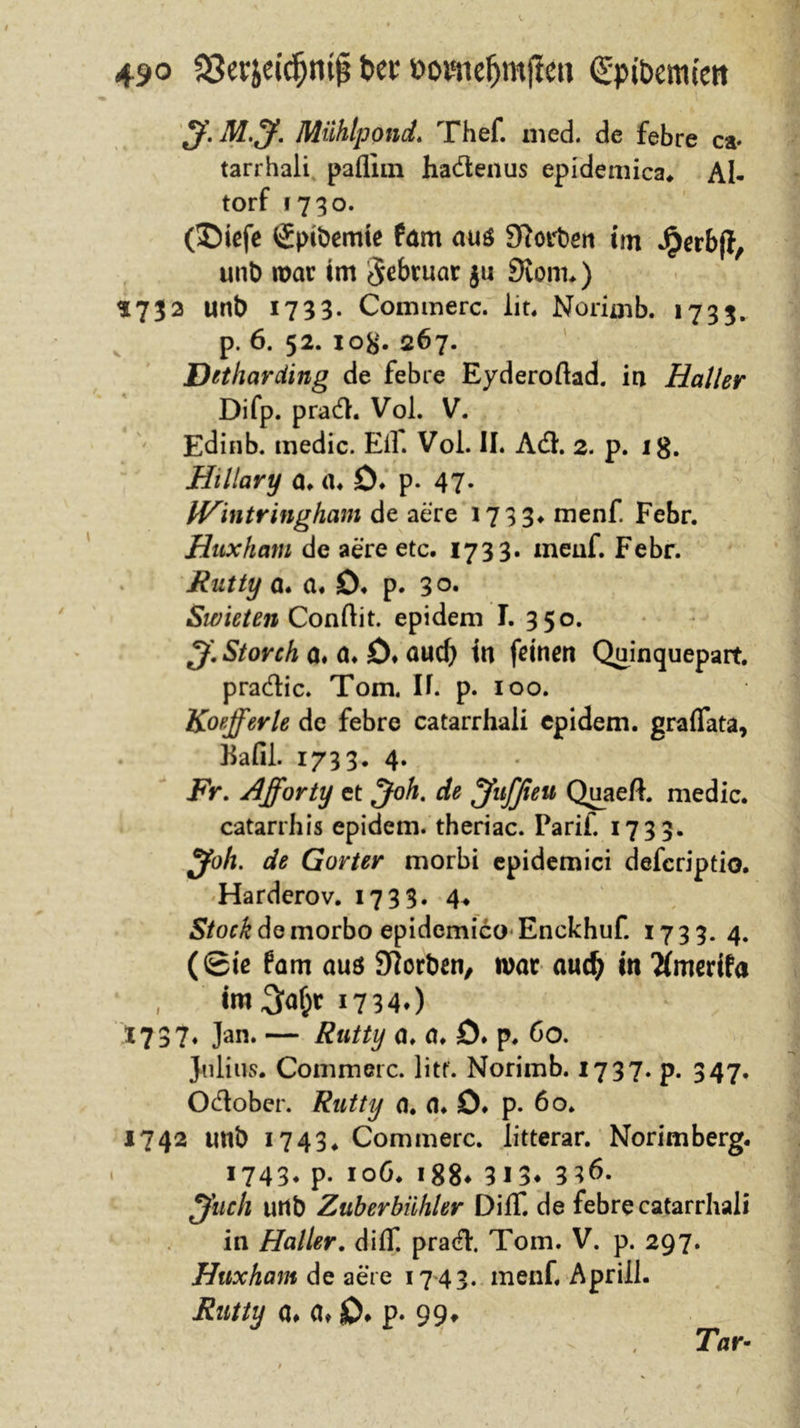 490 Verzeichniß der vornehmsten Epidemien
J. M. J. Mühlpond. Thes. med. de febre ca-
tarrhali passim hactenus epidemica. Al-
torf 1730.
(Diese Epidemie kam aus Norden im Herbst,
und war im Februar zu Rom.)
1732 und 1733. Commerc. lit. Norimb. 1733.
p. 6. 52. 108. 267.
Detharding de febre Eyderostad. in Haller
Disp. pract. Vol. V.
Edinb. medic. Ess. Vol. II. Act. 2. p. 18.
Hillary a. a. O. p. 47.
Wintringham de aëre 1733. mens. Febr.
Huxham de aëre etc. 1733. mens. Febr.
Rutty a. a. O. p. 30.
Swieten Constit. epidem I. 350.
J. Storch a. a. O. auch in seinen Quinquepart.
practic. Tom. II. p. 100.
Koefferle de febre catarrhali epidem. grassata,
Basil. 1733. 4.
Fr. Afforty et Joh. de Jussieu Quaest. medic.
catarrhis epidem. theriac. Paris. 1733.
Joh. de Gorter morbi epidemici descriptio.
Harderov. 1733. 4.
Stock de morbo epidemico Enckhus. 1733. 4.
(Sie kam aus Norden, war auch in Amerika
im Jahr 1734.)
1737. Jan. — Rutty a. a. O. p. 60.
Julius. Commerc. litt. Norimb. 1737. p. 347.
October. Rutty a. a. O. p. 60.
1742 und 1743. Commerc. litterar. Norimberg.
1743. p. 106. 188. 313. 336.
Juch und Zuberbühler Diss. de febre catarrhali
in Haller. diss. pract. Tom. V. p. 297.
Huxham de aëre 1743. mens. Aprill.
Rutty a. a. O. p. 99.
Tar-